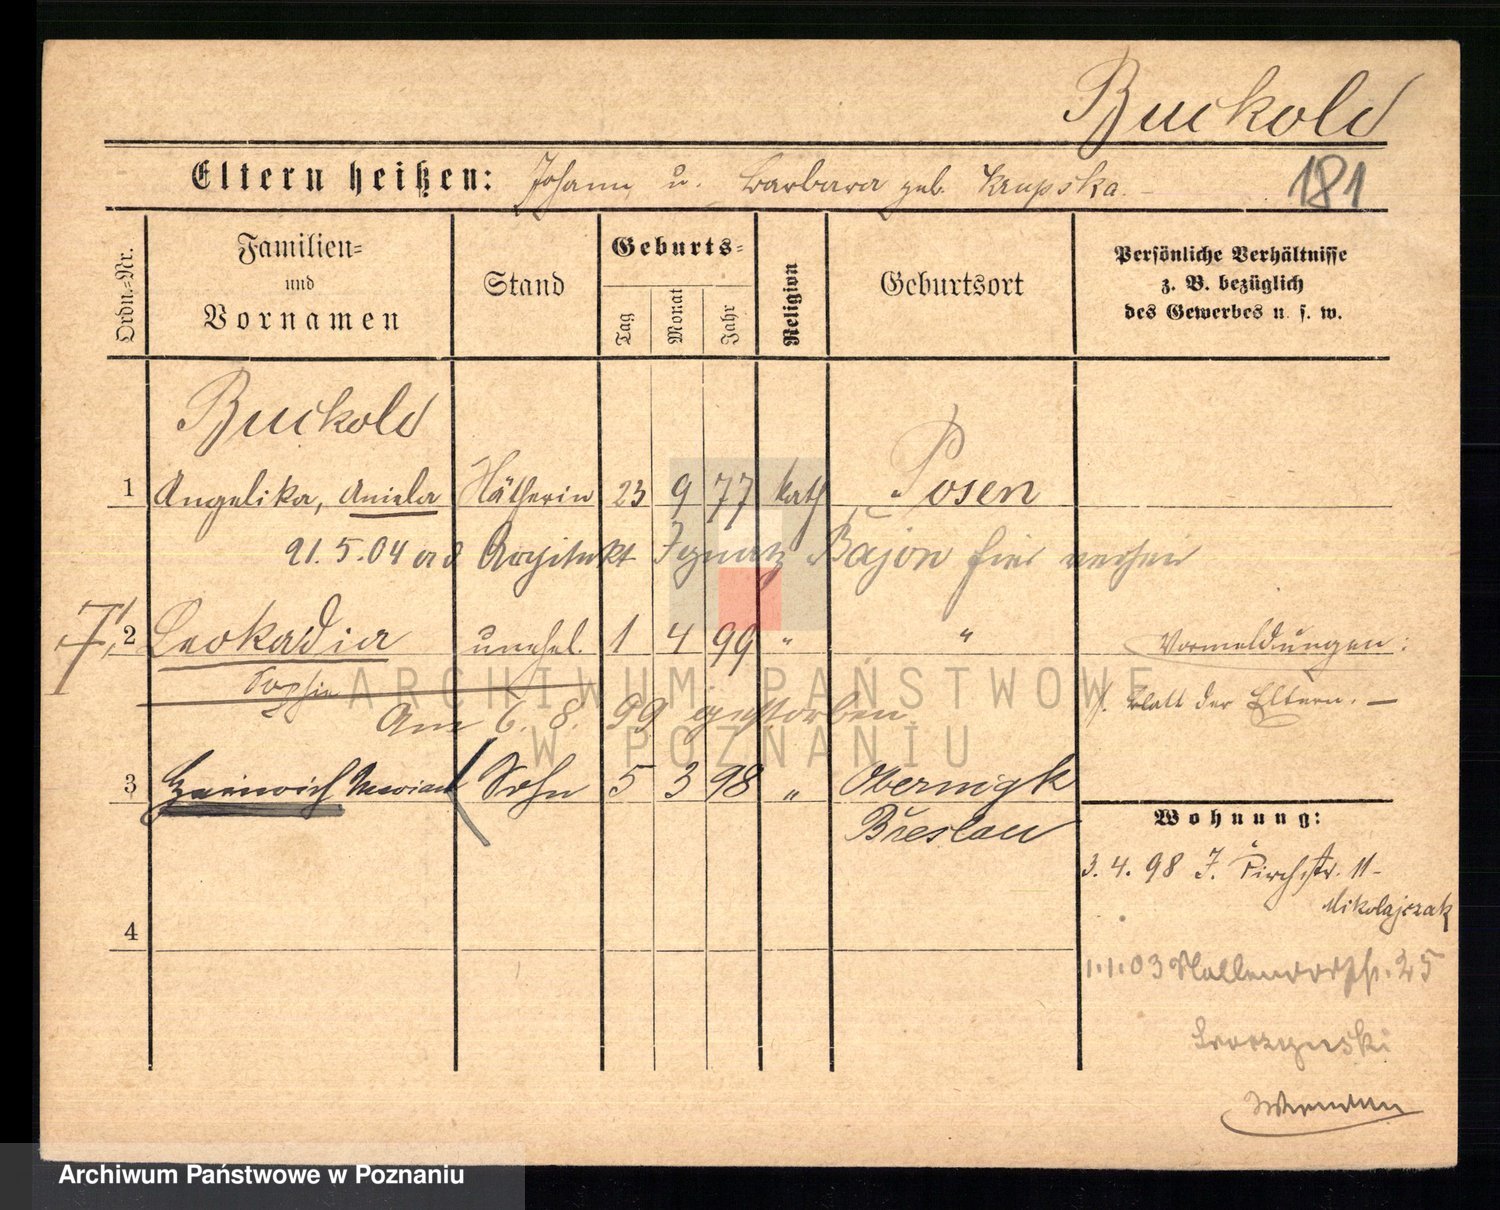 Buckold
Eltern heißen: Johann u. Barbara geb. Krupska. 181
Ordn.-Nr.
Familien- und Vornamen
Stand
Geburts-
Tag Monat Jahr
Religion
Geburtsort
Persönliche Verhältnisse
z. B. bezüglich
des Gewerbes u. s. w.
Buckold
1 Angelika, Aniela Näherin 23 9 77 kath Posen
21.5.04 Architekt Ignatz Bajon hier
7, 2 Leokadia unehel. 1 4 99 " "
Sophie
Am 6. 8. 99 gestorben
Vormeldungen:
s. Blatt der Eltern. —
3 Heinrich Sohn 5 3 98 " Obernigk
Breslau
Wohnung:
3. 4. 98 11
Mikolajczak
4
1.1.03 25
ARCHIWUM PAŃSTWOWE
W POZNANIU
Archiwum Państwowe w Poznaniu